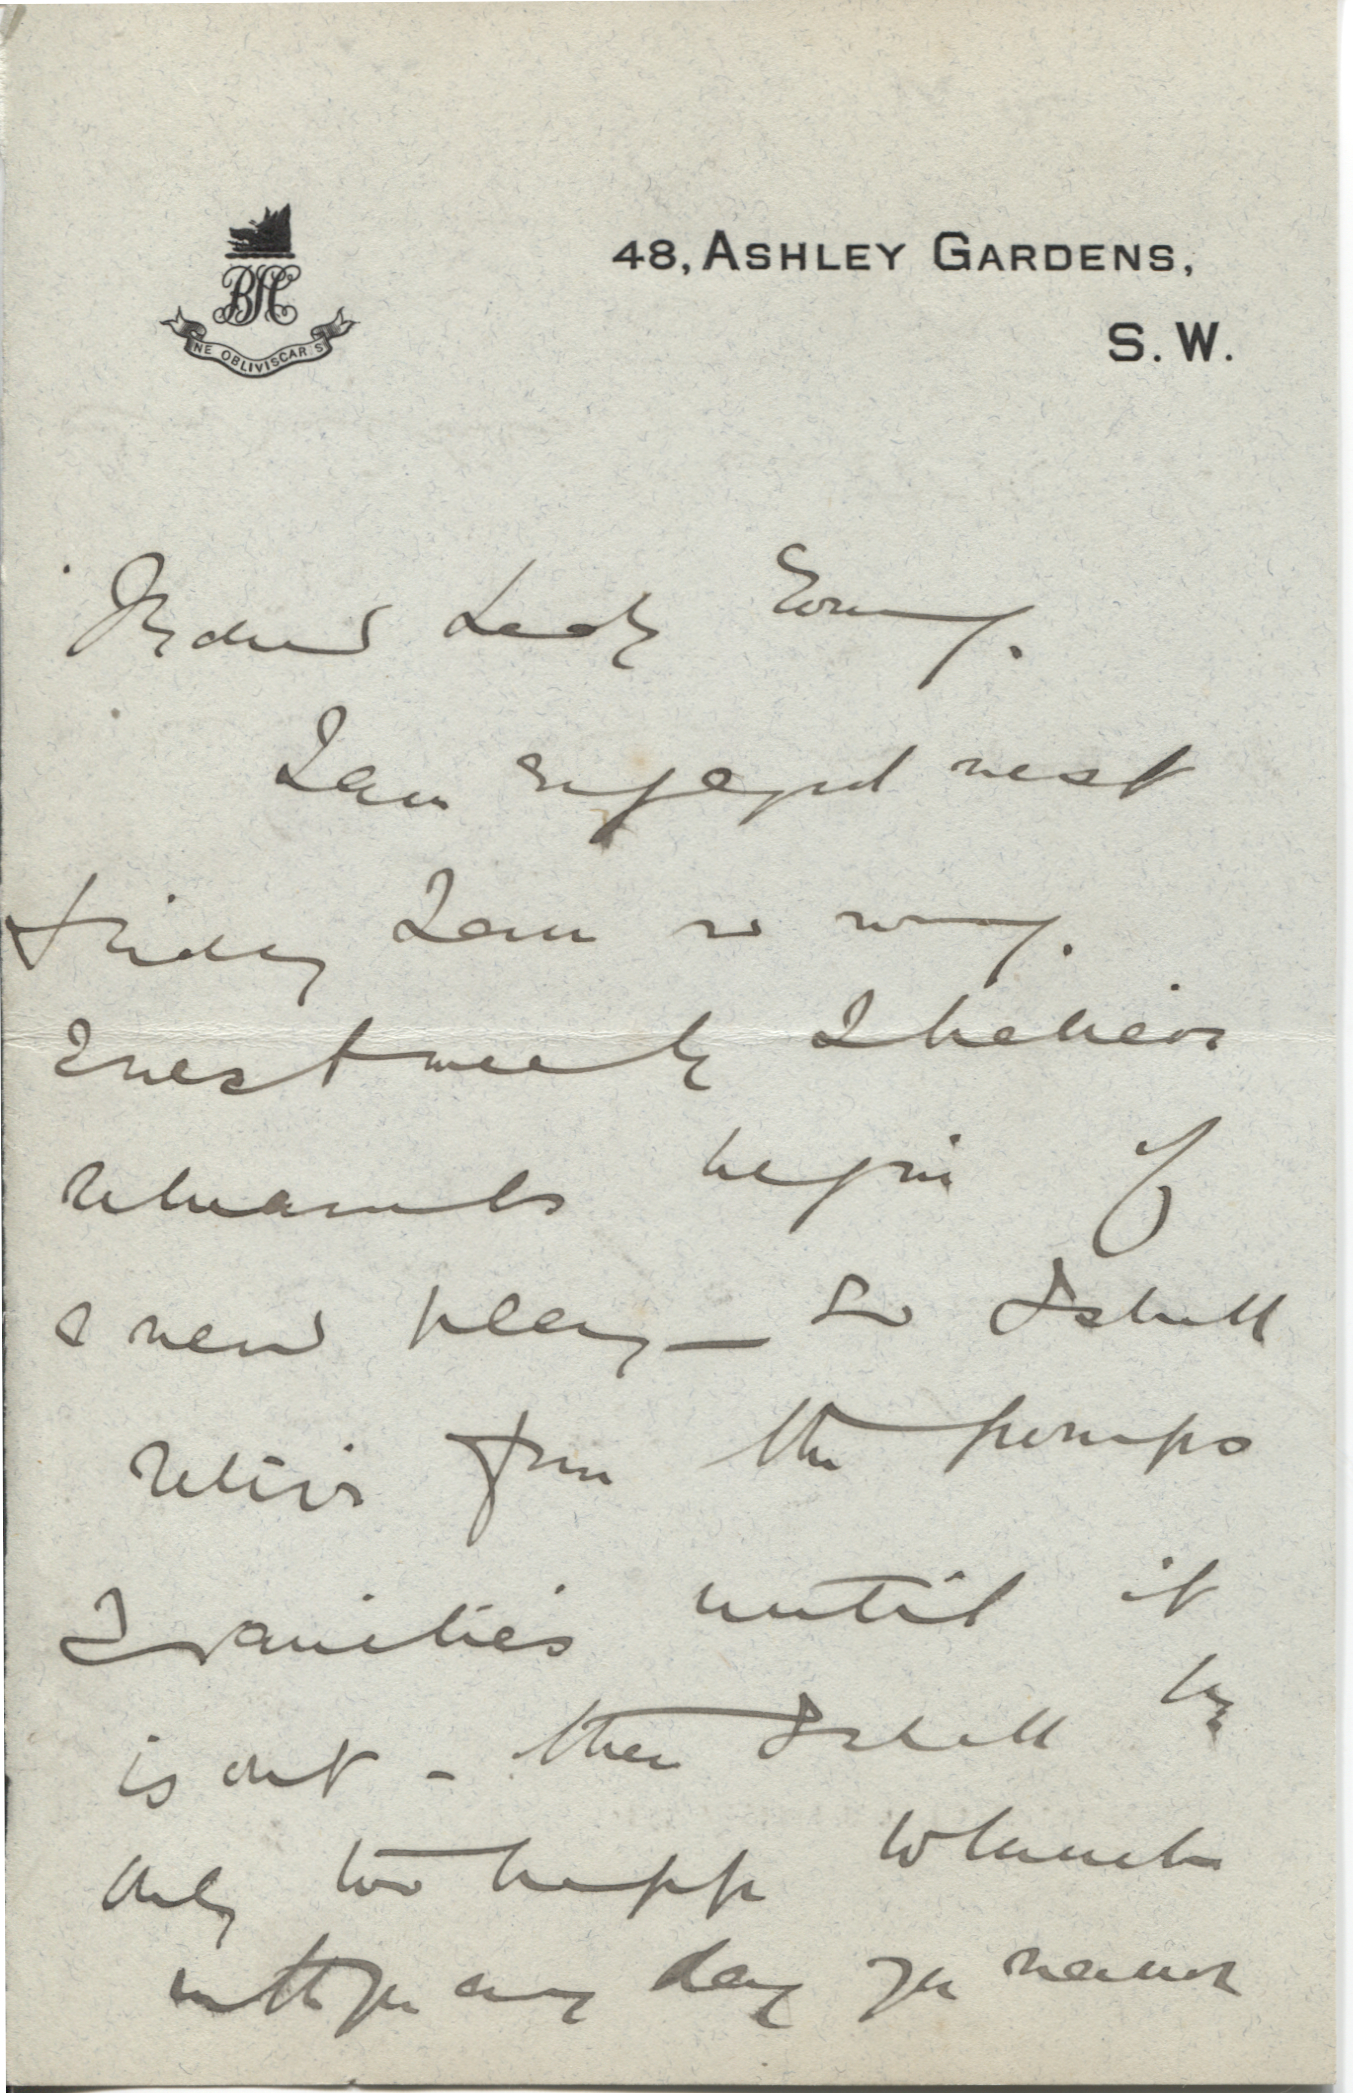 BSC
NE OBLIVISCARIS
48, ASHLEY GARDENS,
S. W.
My dear Lady
I am engaged next
Friday I am so sorry.
& next week I believe
rehearsals begin of
a new play — so I shall
retire from the pomps
& vanities until it
is out - then I shall be
only too happy to lunch
with you any day you name